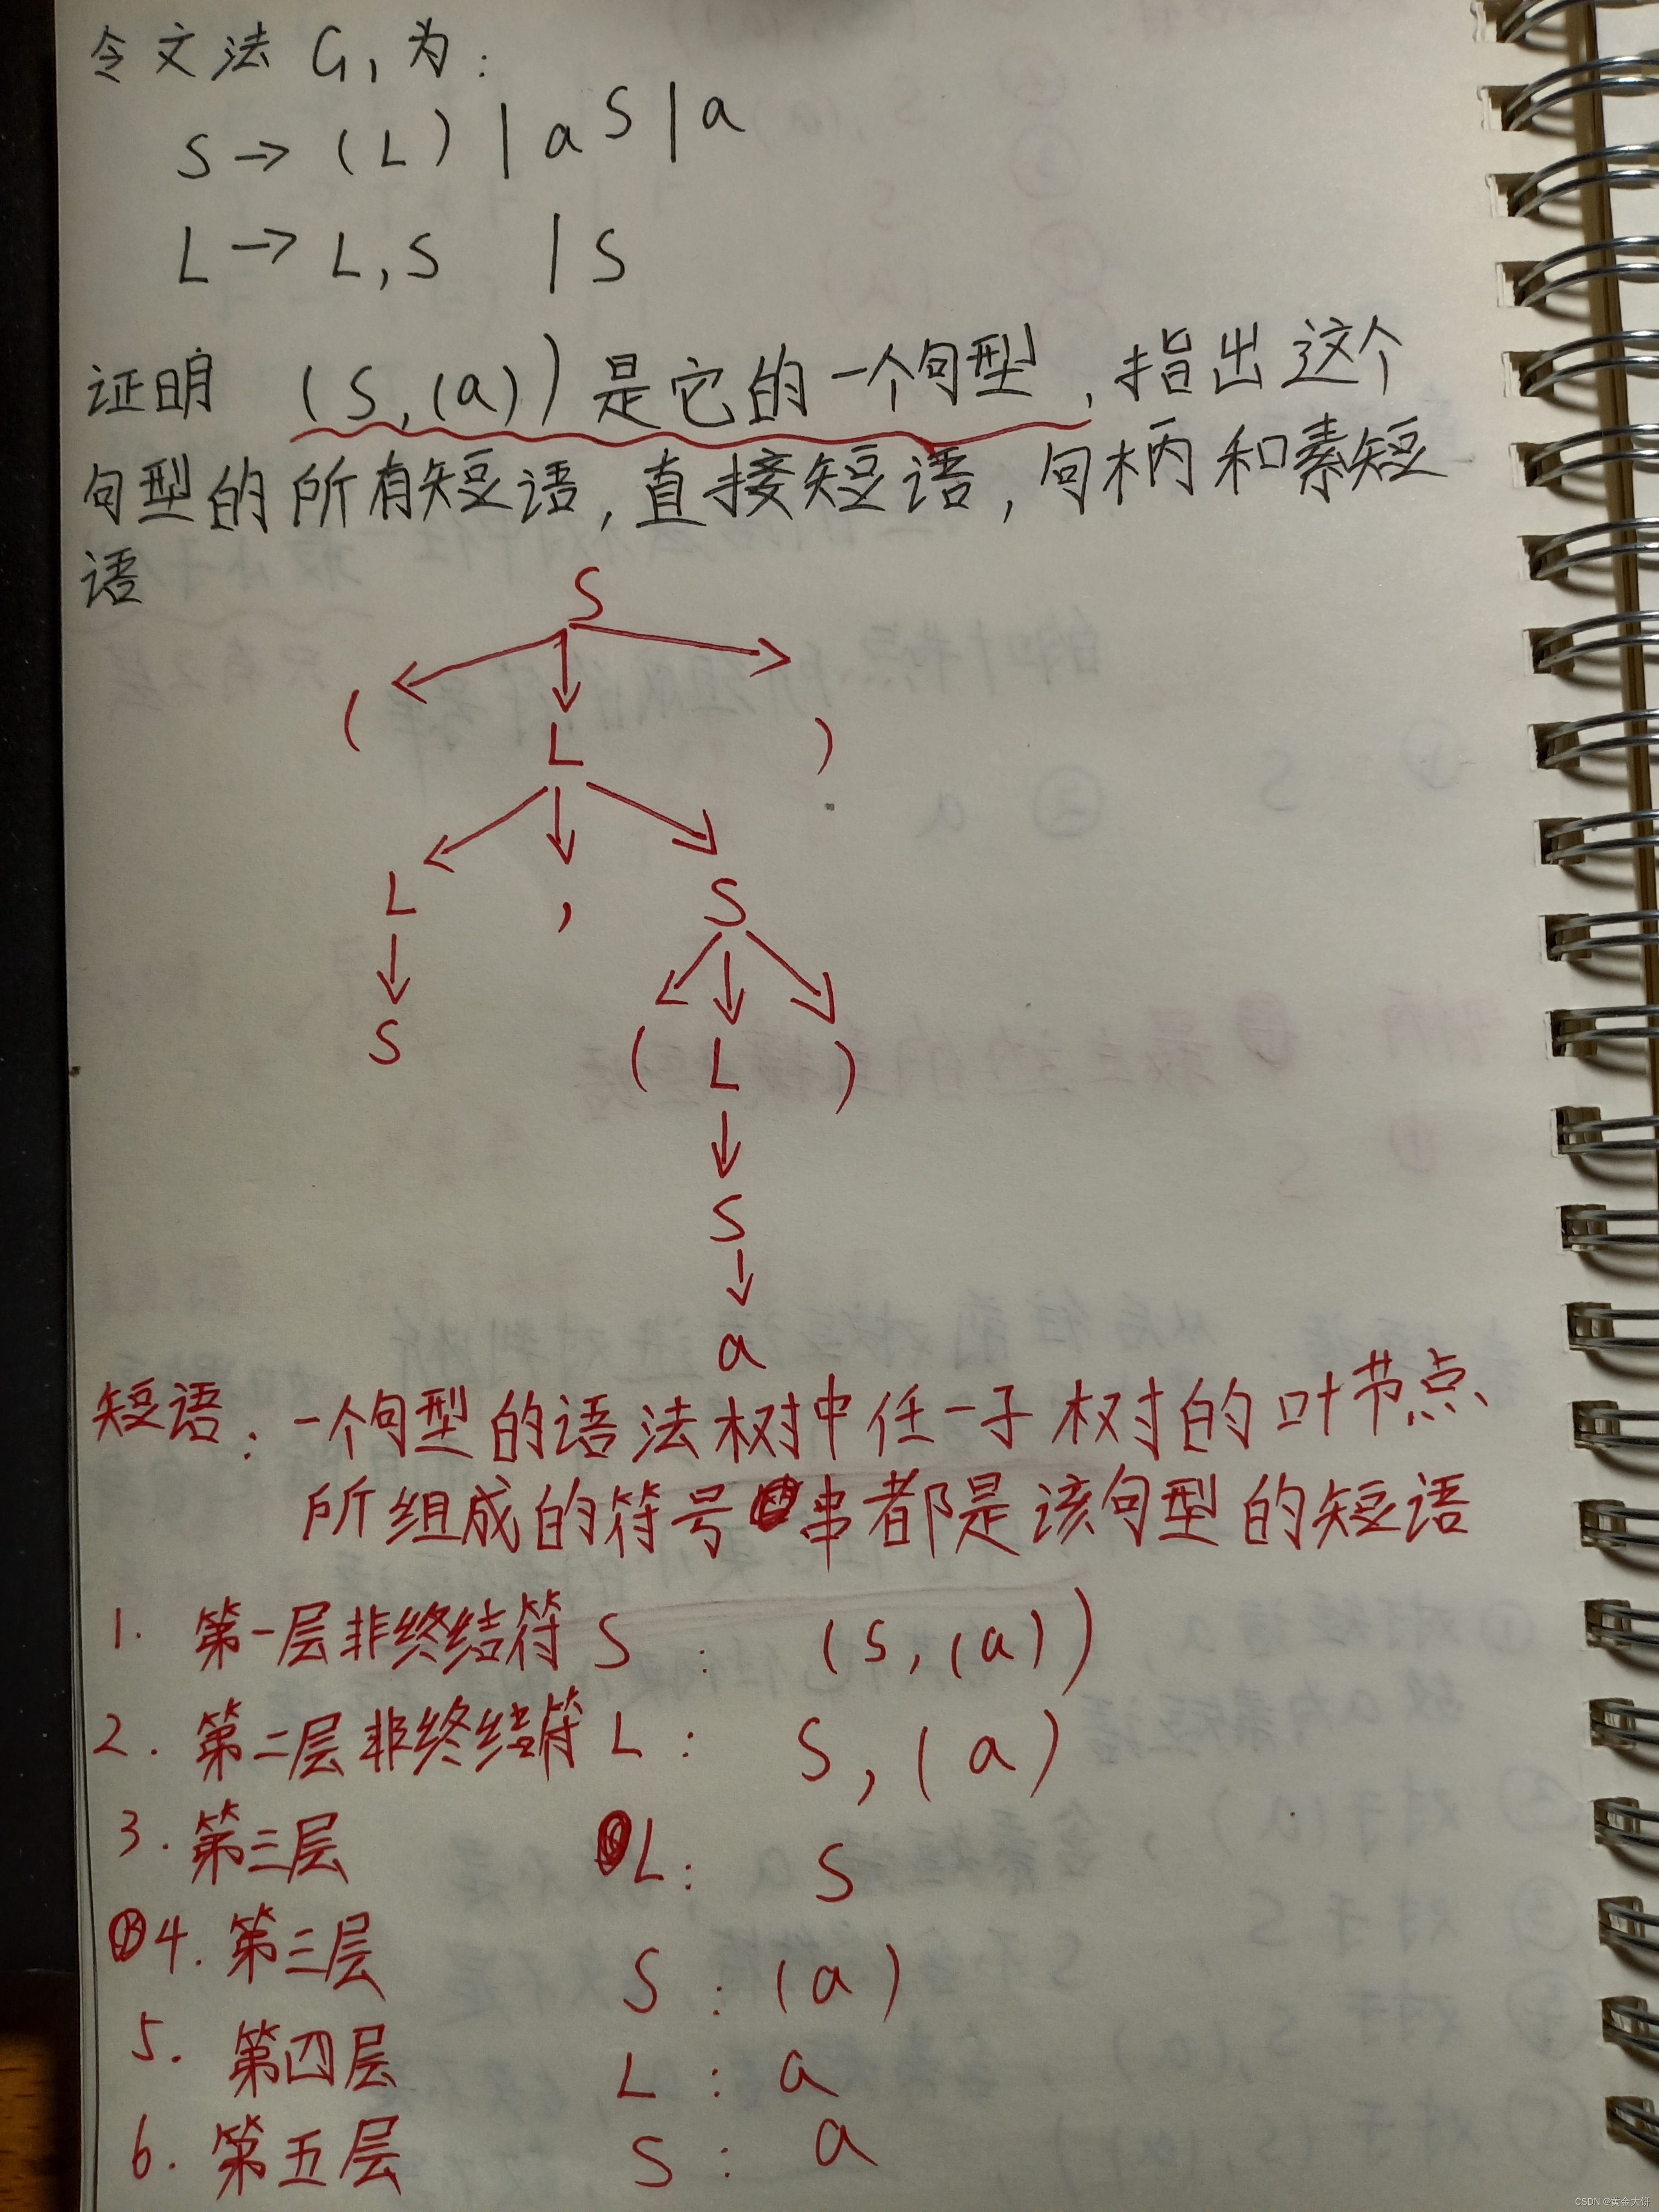 令文法 G₁为:
S → (L) | aS | a
L → L,S | S
证明 (S,(a))是它的一个句型,指出这个
句型的所有短语,直接短语,句柄和素短
语
S
( L )
L , S
S ( L )
S
a
短语:一个句型的语法树中任一子树的叶节点、
所组成的符号串都是该句型的短语
1. 第一层非终结符 S : (S,(a))
2. 第二层非终结符 L : S,(a)
3. 第三层 L: S
4. 第三层 S : (a)
5. 第四层 L : a
6. 第五层 S : a
CSDN @黄金大饼